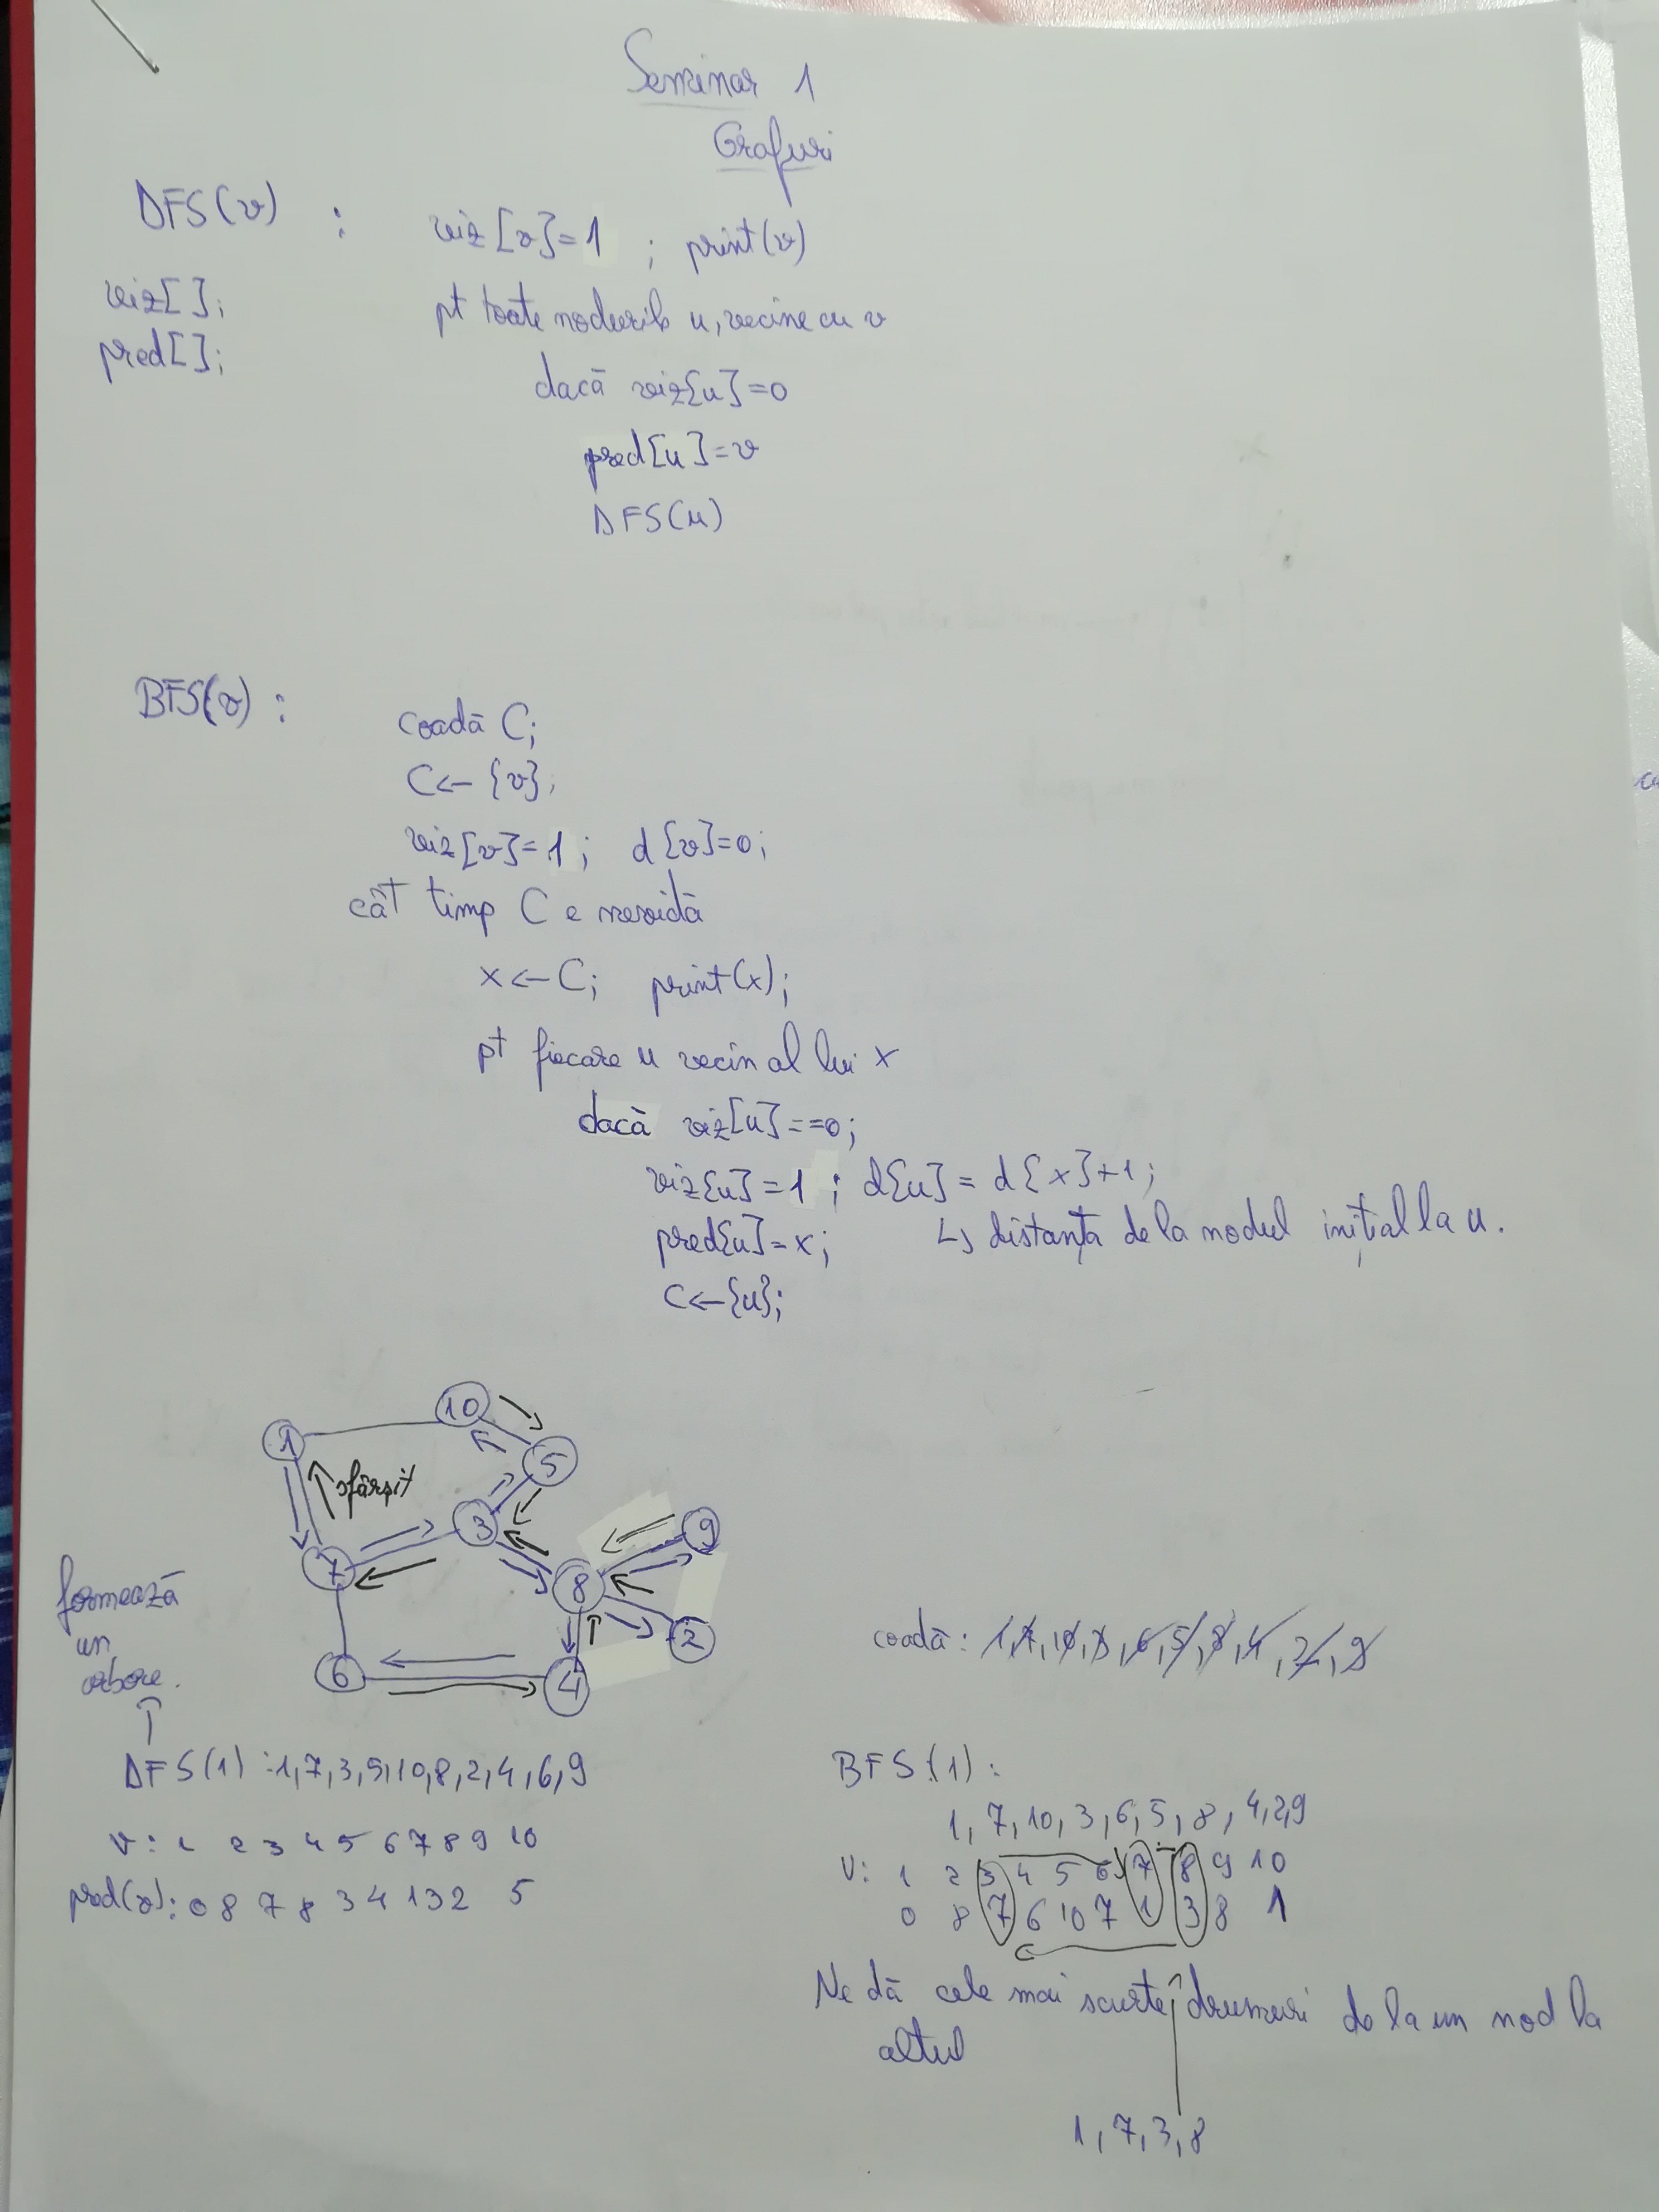 Seminar 1
Grafuri
DFS(v) : viz[v]=1 ; print(v)
viz[];
pt toate nodurile u, vecine cu v
pred[];
dacă viz[u]=0
pred[u]=v
DFS(u)
BFS(v) :
coadă C;
C← {v};
viz[v]=1; d[v]=0;
cât timp C e nevidă
x←C; print(x);
pt fiecare u vecin al lui x
dacă viz[u]==0;
viz[u]=1 ; d[u] = d[x]+1;
pred[u]=x; ↳ distanța de la nodul inițial la u.
C←{u};
10
1
5
sfârșit
3
9
7
8
2
6
4
formează
un
arbore.
coadă: 1,7,10,3,6,5,8,4,2,9
DFS(1) :1,7,3,5,10,8,2,4,6,9
v: 1 2 3 4 5 6 7 8 9 10
pred(v): 0 8 7 8 3 4 1 3 2 5
BFS(1):
1, 7, 10, 3, 6, 5, 8, 4, 2, 9
v: 1 2 3 4 5 6 7 8 9 10
0 8 7 6 10 7 1 3 8 1
Ne dă cele mai scurte drumuri de la un nod la
altul
1, 7, 3, 8